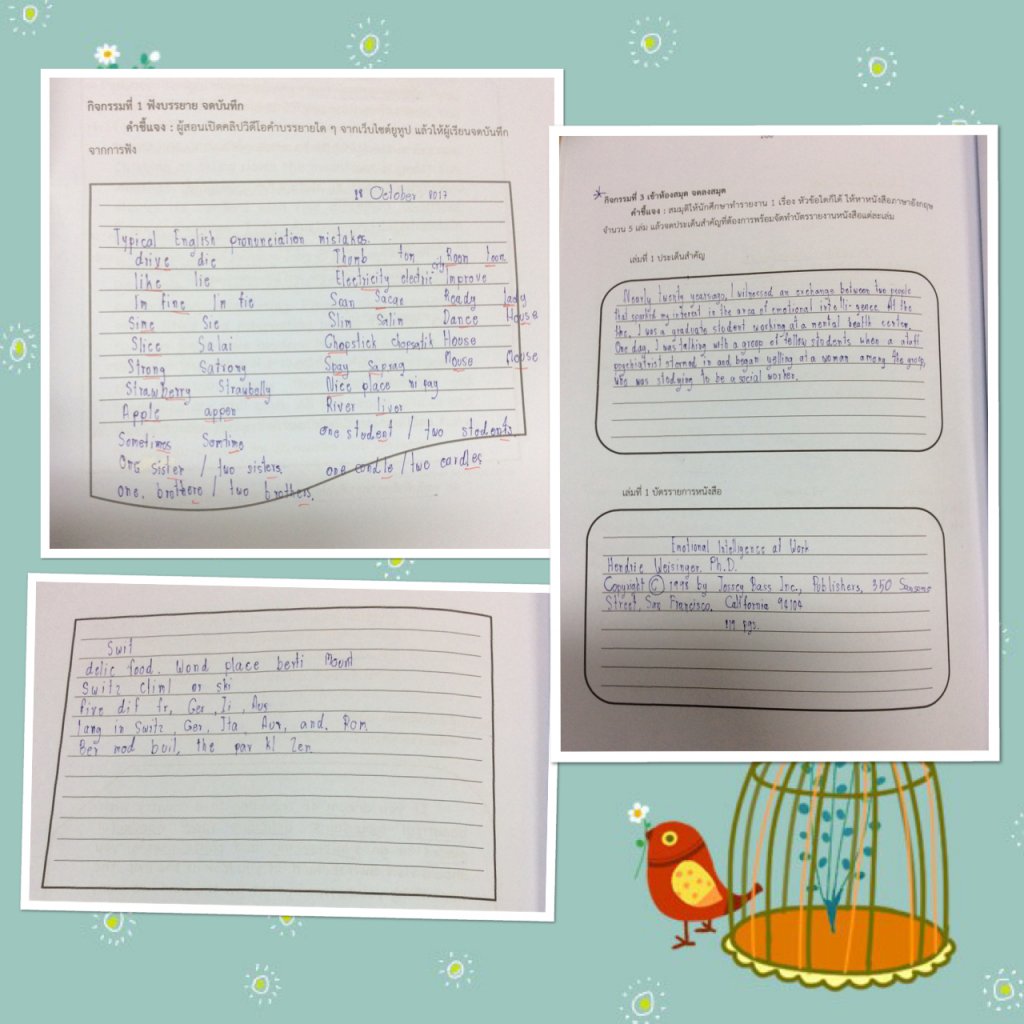 กิจกรรมที่ 1 ฟังบรรยาย จดบันทึก
คำชี้แจง : ผู้สอนเปิดคลิปวิดีโอคำบรรยายใด ๆ จากเว็บไซต์ยูทูป แล้วให้ผู้เรียนจดบันทึก
จากการฟัง
18 October 2017
Typical English pronunciation mistakes.
drive die Thumb tom Room loom
like lie Electricity electric city Improve
I'm fine I'm fie Scan Sacae Ready lady
Sine Sie Slim Salim Dance House
Slice Salai Chopstick chopsatik House
Strong Satrong Spay Saprag Mouse Mouse
Strawberry Strawbelly Nice place ni pay
Apple appen River liver
Sometimes Somtime one student / two students.
One sister / two sisters. one candle / two candles
one. brothere / two brothers.
กิจกรรมที่ 3 เข้าห้องสมุด จดลงสมุด
คำชี้แจง : สมมุติให้นักศึกษาทำรายงาน 1 เรื่อง หัวข้อใดก็ได้ ให้หาหนังสือภาษาอังกฤษ
จำนวน 5 เล่ม แล้วจดประเด็นสำคัญที่ต้องการพร้อมจัดทำบัตรรายงานหนังสือแต่ละเล่ม
เล่มที่ 1 ประเด็นสำคัญ
Nearly twenty years ago, I witnessed an exchange between two people
that sparked my interest in the area of emotional intelligence. At the
time, I was a graduate student working at a mental health center.
One day, I was talking with a group of fellow students when a staff
psychiatrist stormed in and began yelling at a woman among the group,
who was studying to be a social worker.
เล่มที่ 1 บัตรรายการหนังสือ
Emotional Intelligence at Work
Hendrie Weisinger, Ph.D.
Copyright © 1998 by Jossey Bass Inc., Publishers, 350 Sansome
Street, San Francisco, California 94104
219 pgs.
Swit
delic food. Wond place berti Mount
Switz climl or ski
five dif fr, Ger, Ii, Aus
lang in Switz, Ger, Ita, Aus, and. Rom
Ber mod buil, the par kl Zen